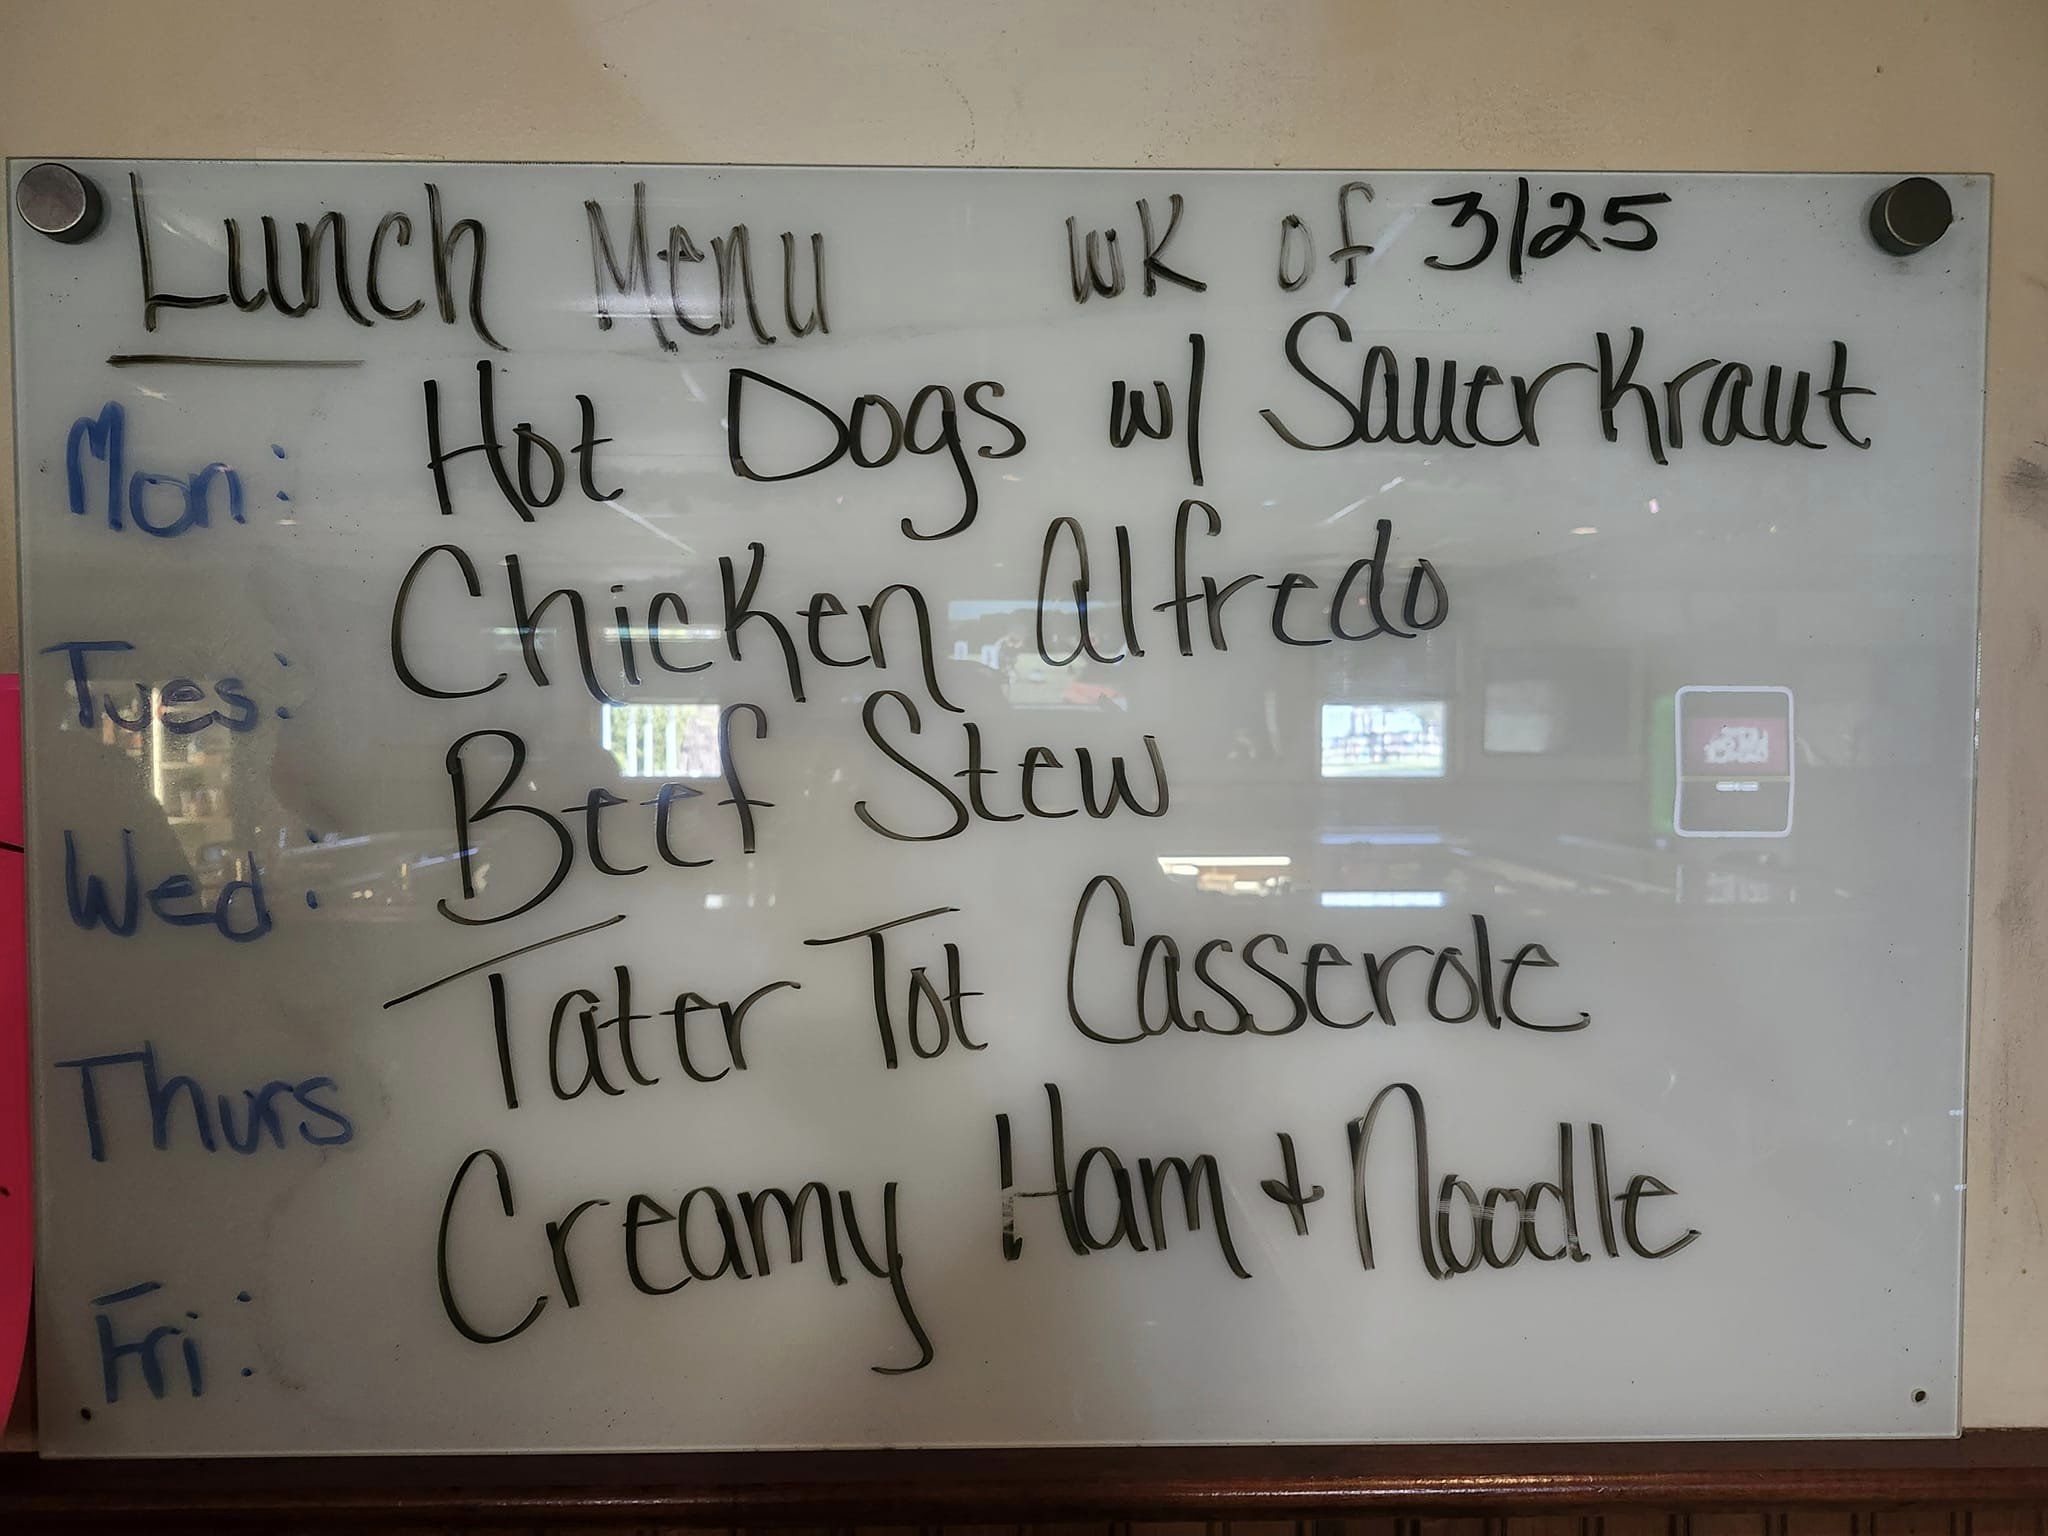 Lunch Menu wk of 3/25
Mon: Hot Dogs w/ SauerKraut
Tues: Chicken Alfredo
Wed: Beef Stew
Thurs Tater Tot Casserole
Fri: Creamy Ham + Noodle